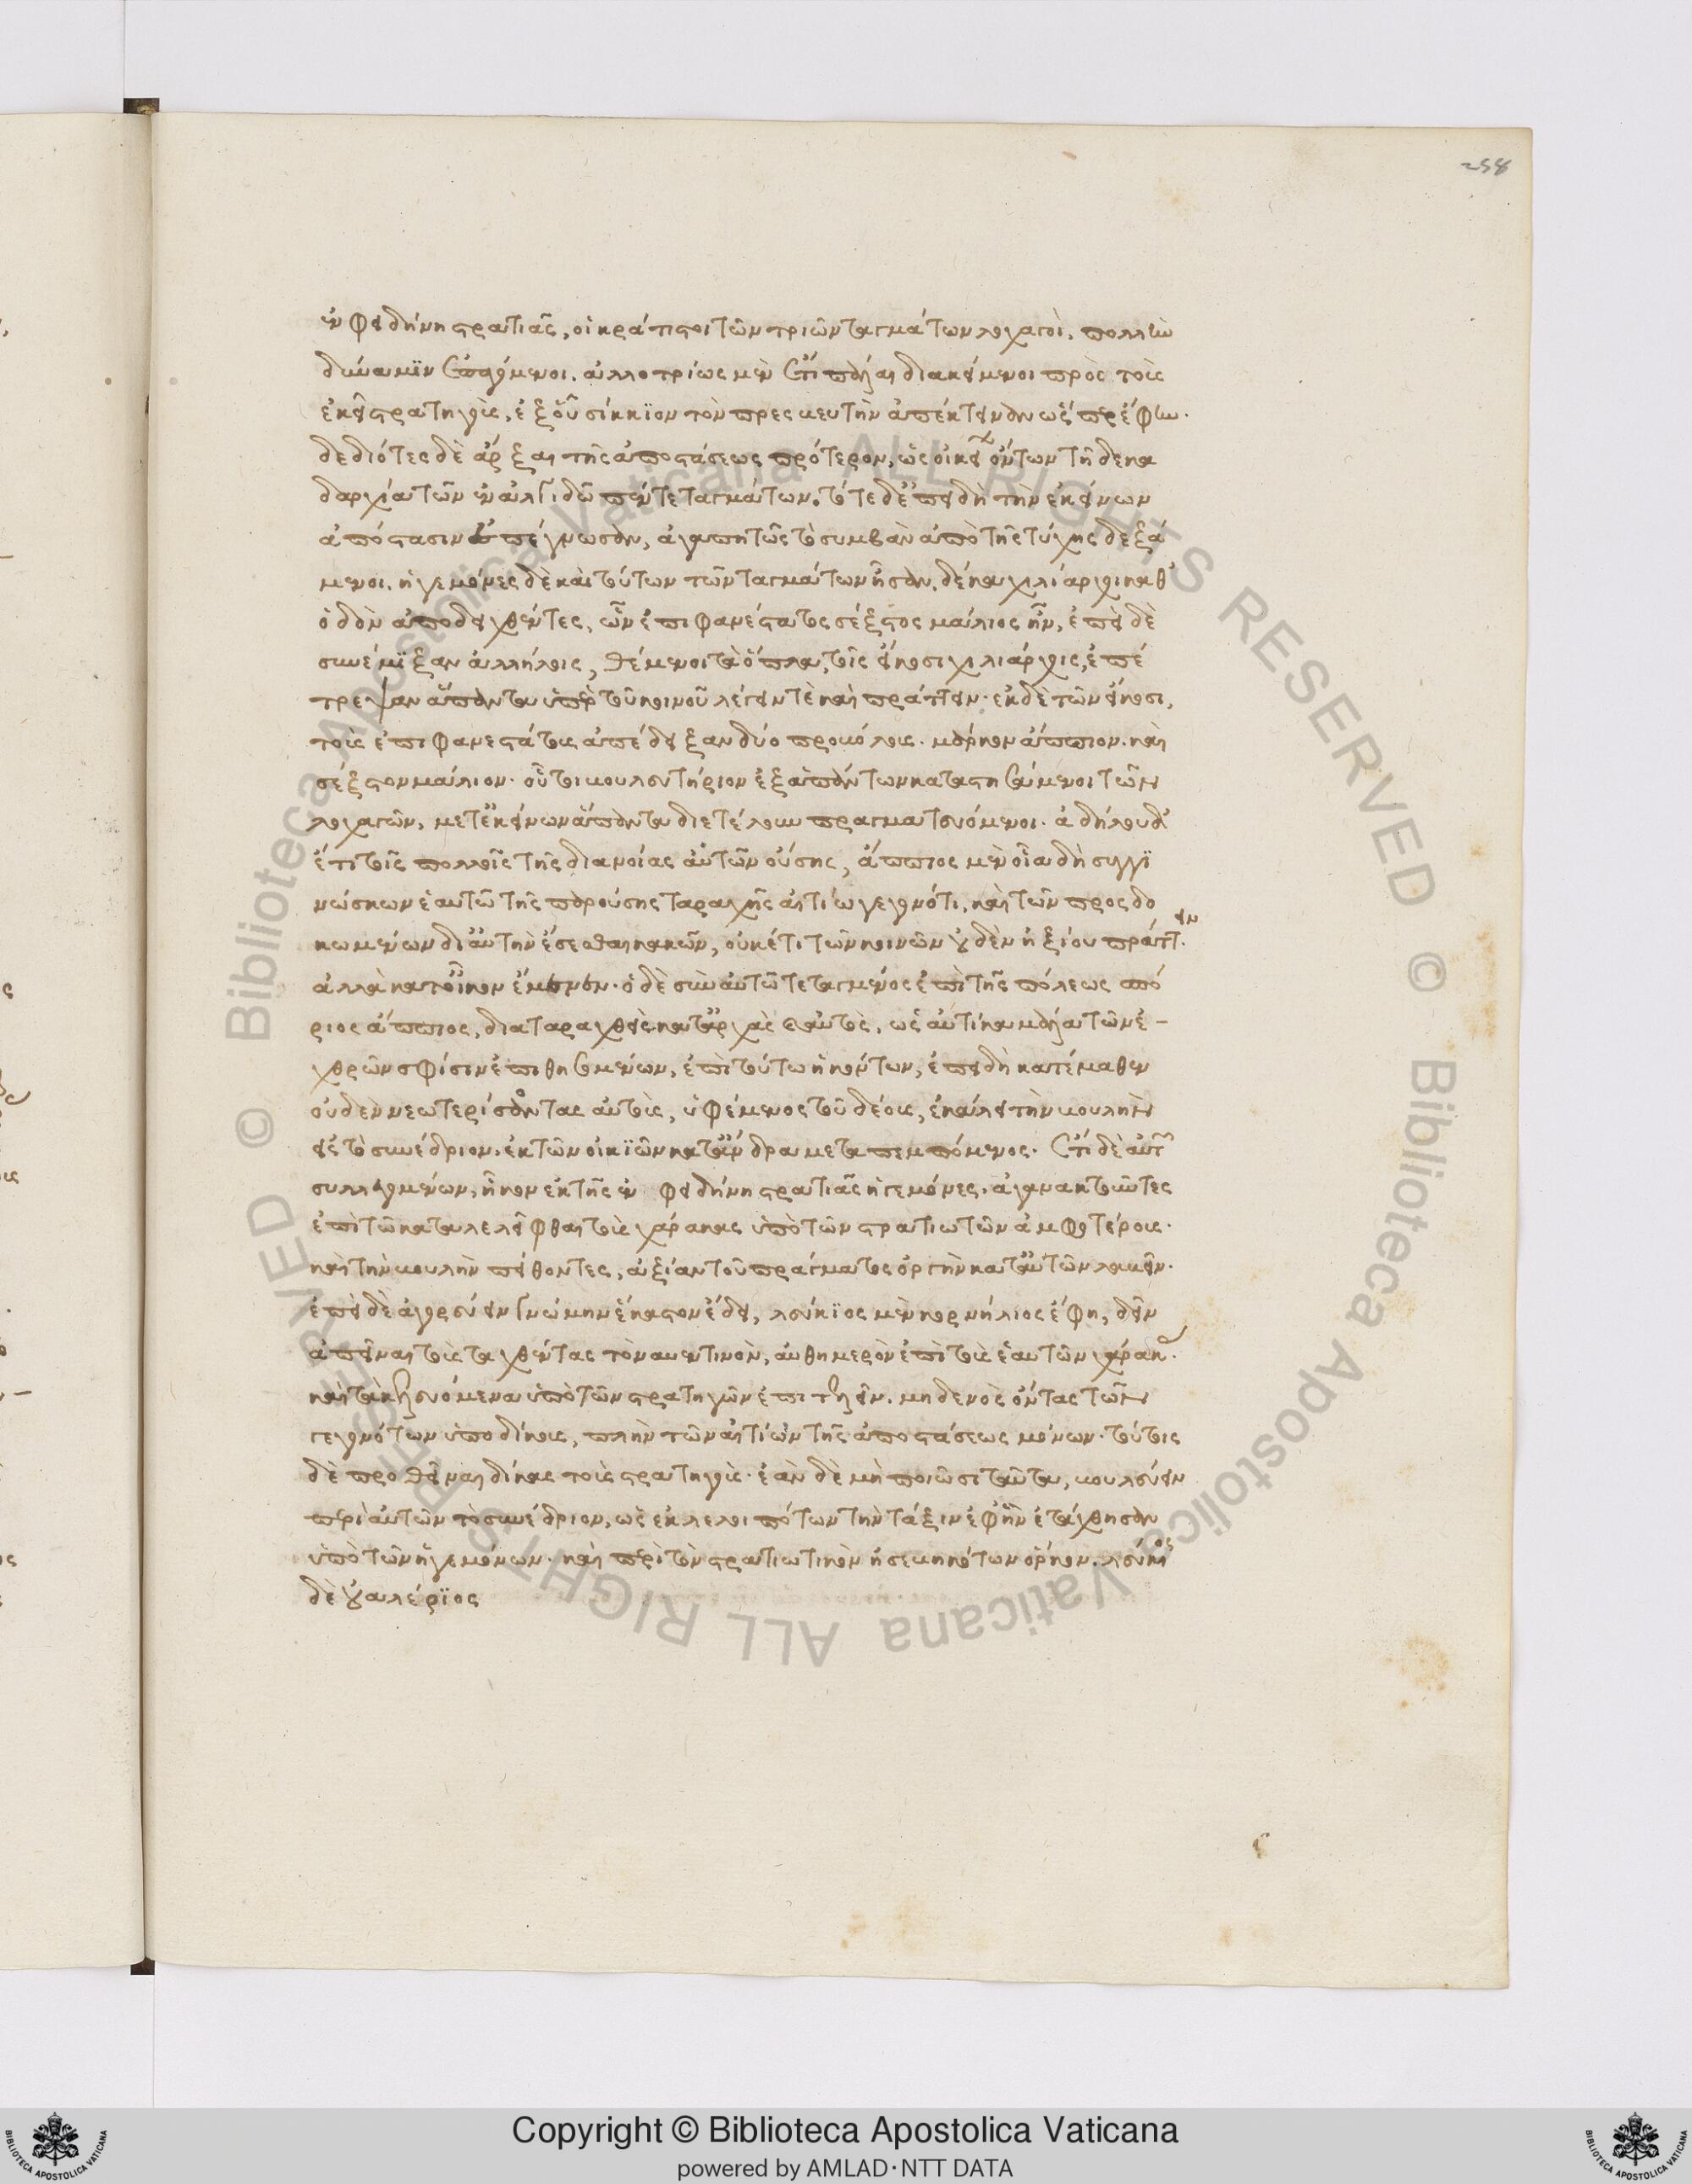 258
ἐν φιδήνῃ στρατιᾶς, οἱ κράτιστοι τῶν τριῶν ταγμάτων λοχαγοὶ, πολλὴν
δύναμϊν ἐπαγόμενοι. ἀλλοτρίως μὲν ἔτι πάλαι διακείμενοι πρὸς τοὺς
ἐκεῖ στρατηγοὺς, ἐξ οὗ σίκκϊον τὸν πρεσβευτὴν ἀπέκτειναν ὡς πρ έφην.
δεδιότες δὲ ἄρξαι τῆς ἀποστάσεως πρότερον, ὡς οἰκείων ὄντων τῇ δεκα
δαρχίᾳ τῶν ἐν ἀλγιδῶ πέντε ταγμάτων. τότε δ' ἐπειδὴ τὴν ἐκείνων
ἀπόστασιν ἐπέγνωσαν, ἀγαπητῶς τὸ συμβὰν ἀπὸ τῆς τύχης δεξά
μενοι. ἡγεμόνες δὲ καὶ τούτων τῶν ταγμάτων ἦσαν, δέκα χιλίαρχοι καθ'
ὁδὸν ἀποδειχθέντες, ὧν ἐπιφανέστατος σέξστος μάλιος ἦν, ἐπεὶ δὲ
συνέμϊξαν ἀλλήλοις, θέμενοι τὰ ὅπλα, τοῖς εἴκοσι χιλιάρχοις, ἐπέ
τρεψαν ἅπαντα ὑπὲρ τοῦ κοινοῦ λέγειν τὲ καὶ πράττειν. ἐκ δὲ τῶν εἴκοσι,
τοὺς ἐπιφανεστάτους ἀπέδειξαν δύο προβούλους. μάρκον ἄππιον. καὶ
σέξστον μάλιον. οὗτοι βουλευτήριον ἐξ ἁπάντων καταστησάμενοι τῶν
λοχαγῶν, μετ' ἐκείνων ἅπαντα διετέλουν πραγματευόμενοι. ἀδήλου δ'
ἔτι τοῖς πολλοῖς τῆς διανοίας αὐτῶν οὔσης, ἄππιος μὲν οἷα δὴ συγγϊ
νώσκων ἑαυτῶ τῆς παρούσης ταραχῆς αἰτίω γεγονότι, καὶ τῶν προσδο
κωμένων δι' αὐτὴν ἔσεσθαι κακῶν, οὐκέτι τῶν κοινῶν οὐδὲν ἠξίου πράττειν.
ἀλλὰ κατ' οἶκον ἔμενεν. ὁ δὲ σὺν αὐτῶ τεταγμένος ἐπὶ τῆς πόλεως σπό
ριος ἄππιος, διαταραχθεὶς κατ' ἀρχὰς καὐτὸς, ὡς αὐτίκα μάλα τῶν ἐ-
χθρῶν σφίσιν ἐπιθησομένων, ἐπὶ τούτω ἡκόντων, ἐπειδὴ κατέμαθεν
οὐδὲν νεωτερίσαντας αὐτοὺς, ὑφέμενος τοῦ δέους, ἐκάλει τὴν βουλὴν
εἰς τὸ συνέδριον, ἐκ τῶν οἰκϊῶν κατ' ἄνδρα μεταπεμπόμενος. ἔτι δὲ αὐτῶν
συλλεγομένων, ἧκον ἐκ τῆς ἐν φιδήνῃ στρατιᾶς ἡγεμόνες. ἀγανακτοῦντες
ἐπὶ τῶ καταλελεῖφθαι τοὺς χάρακας ὑπὸ τῶν στρατιωτῶν ἀμφοτέρους.
καὶ τὴν βουλὴν πείθοντες, ἀξίαν τοῦ πράγματος ὀργὴν κατ' αὐτῶν λαβεῖν.
ἐπεὶ δὲ ἀγορεύειν γνώμην ἕκαστον ἔδει, λεύκϊος μὲν κορνήλιος ἔφη, δεῖν
ἀπιέναι τοὺς ταχθέντας τὸν αβεντινὸν, αὐθημερὸν ἐπὶ τοὺς ἑαυτῶν χάρακας.
καὶ τὰ κελευόμενα ὑπὸ τῶν στρατηγῶν ἐπιτελεῖν. μηδενὸς ὄντας τῶν
γεγονότων ὑποδίκους, πλὴν τῶν αἰτίων τῆς ἀποστάσεως μόνων. τούτοις
δὲ προθεῖναι δίκας τοὺς στρατηγοὺς. ἐὰν δὲ μὴ ποιῶσι ταῦτα, βουλεύειν
περὶ αὐτῶν τὸ συνέδριον, ὡς ἐκλελοιπότων τὴν τάξιν ἐφ' ἣν ἐτάχθησαν
ὑπὸ τῶν ἡγεμόνων. καὶ περὶ τὸν στρατιωτικὸν ἠσεβηκότων ὅρκον. λεύκιος
δὲ οὐαλέρϊος